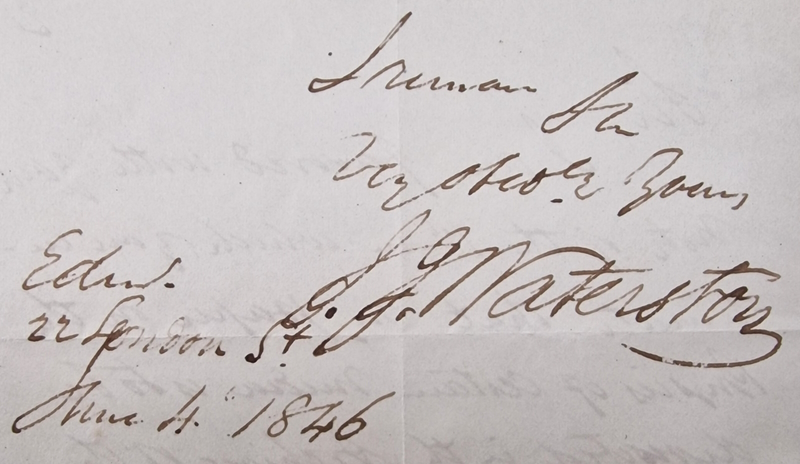 I remain
Sir
Very obedly Yours,
J J Waterston
J. J.
Edinr.
22 London St.
June 4. 1846